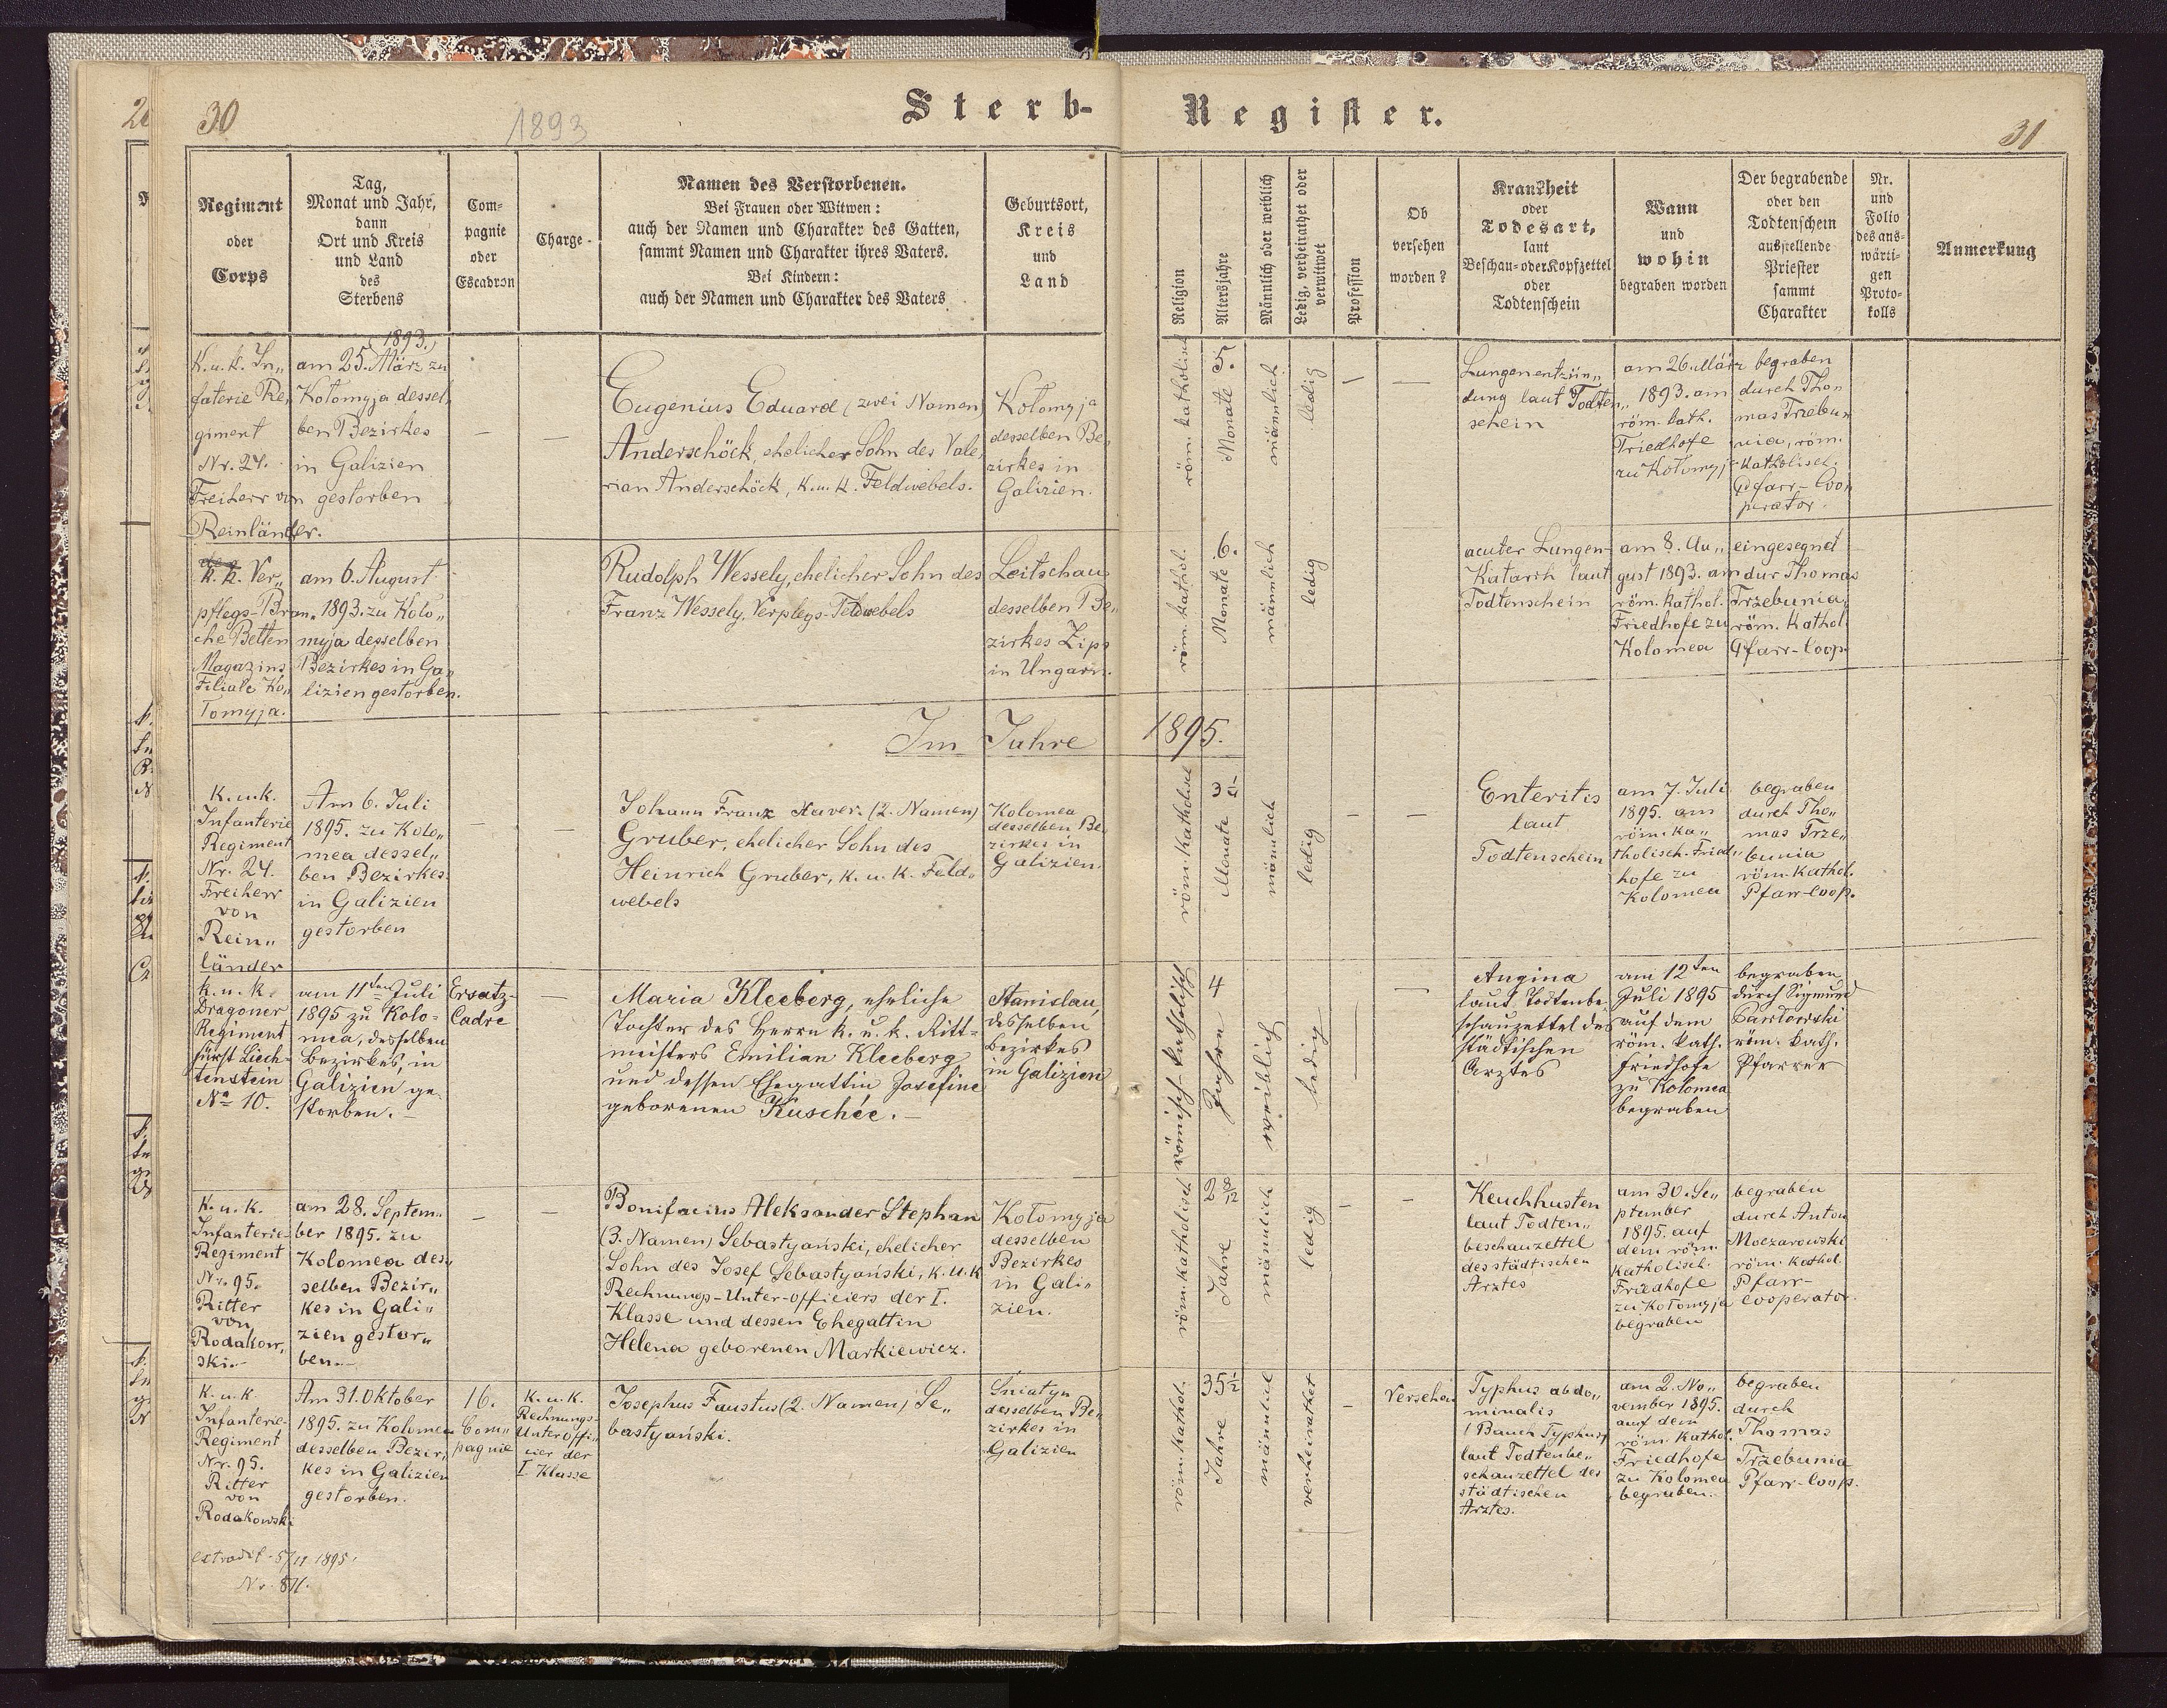 30
1893
Sterb-
Register.
31
Regiment
oder
Corps
Tag,
Monat und Jahr,
dann
Ort und Kreis
und Land
des
Sterbens
Com-
pagnie
oder
Escadron
Charge.
Namen des Verstorbenen.
Bei Frauen oder Witwen:
auch der Namen und Charakter des Gatten,
sammt Namen und Charakter ihres Vaters.
Bei Kindern:
auch der Namen und Charakter des Vaters
Geburtsort,
Kreis
und
Land
Religion
Altersjahre
Männlich oder weiblich
Ledig, verheirathet oder
verwitwet
Profession
Ob
versehen
worden?
Krankheit
oder
Todesart,
laut
Beschau- oder Kopfzettel
oder
Todtenschein
Wann
und
wohin
begraben worden
Der begrabende
oder den
Todtenschein
ausstellende
Priester
sammt
Charakter
Nr.
und
Folio
des aus-
wärti-
gen
Proto-
kolls
Anmerkung
K. u. k. In„
faterie Re„
giment
Nr. 24.
Freiherr von
Reinländer.
1893.
am 25. März zu
Kołomyja dessel„
ben Bezirkes
in Galizien
gestorben
—
—
Eugenius Eduard (zwei Namen)
Anderschöck, ehelicher Sohn des Vale„
rian Anderschöck, k. u. k. Feldwebels.
Kołomyja
desselben Be„
zirkes in
Galizien.
röm. katholisch
5.
Monate
männlich
ledig
—
—
Lungenentzün„
dung laut Todten„
schein
am 26. März
1893. am
röm. kath.
Friedhofe
zu Kołomyja
begraben
durch Tho„
mas Trzebu„
nia, röm.
katholisch.
Pfarr-Coo„
perator.
des
k. k. Ver„
pflegs-Bran„
che Betten
Magazins
Filiale Ko„
lomyja.
am 6. August
1893. zu Kolo„
myja desselben
Bezirkes in Ga„
lizien gestorben.
Rudolph Wessely, ehelicher Sohn des
Franz Wessely, Verplegs-Feldwebels
Leitschau
desselben Be„
zirkes Zips
in Ungarn.
röm. kathol.
6.
Monate
männlich
ledig
acuter Lungen-
Katarrh laut
Todtenschein
am 8. Au„
gust 1893. am
röm. kathol.
Friedhofe zu
Kolomea
eingesegnet
dur Thomas
Trzebunia,
röm. Kathol.
Pfarr-Coop.
Im Jahre 1895.
K. u. k.
Infanterie
Regiment
Nr. 24.
Freiherr
von
Rein„
länder
Am 6. Juli
1895. zu Kolo„
mea dessel„
ben Bezirkes
in Galizien
gestorben
—
—
Johann Franz Xaver. (2. Namen)
Gruber, ehelicher Sohn des
Heinrich Gruber, k. u. k. Feld„
webels
Kolomea
desselben Be„
zirkes in
Galizien.
röm. katholisch
Monate
männlich
ledig
—
—
Enteritis
laut
Todtenschein
am 7. Juli
1895. am
röm. ka„
tholisch. Fried„
hofe zu
Kolomea
begraben
durch Tho„
mas Trze„
bunia
röm. kathol.
Pfarr-Coop.
k. u. k.
Dragoner
Regiment
Fürst Liech-
tenstein
No 10.
am 11ten Juli
1895 zu Kolo-
mea, desselben
Bezirkes, in
Galizien ge-
storben.—
Ersatz-
Cadre
—
Maria Kleeberg, eheliche
Tochter des Herrn k. u. k. Ritt-
meisters Emilian Kleeberg
und dessen Ehegattin Josefine
geborenen Kuschée.—
Stanislau,
desselben
Bezirkes
in Galizien
römisch-katholisch
4
Jahre
weiblich
ledig
—
—
Angina
laut Todtenbe-
schauzettel des
städtischen
Arztes
am 12ten
Juli 1895
auf dem
röm. kath.
Friedhofe
zu Kolomea
begraben
begraben
durch Sigmund
röm. kath.
Pfarrer
K. u. k.
Infanterie-
Regiment
Nr. 95.
Ritter
von
Rodakow„
ski.—
am 28. Septem„
ber 1895. zu
Kolomea des„
selben Bezir„
kes in Gali„
zien gestor„
ben.—
—
—
Bonifacius Aleksander Stephan
(3. Namen) Sebastyański, ehelicher
Sohn des Josef Sebastyański, k. u. k
Rechnungs-Unter-officiers der I.
Klasse und dessen Ehegattin
Helena geborenen Markiewicz.
Kołomyja
desselben
Bezirkes
in Gali„
zien.
röm. katholisch
2 8/12
Jahre
männlich
ledig
—
—
Keuchhusten
laut Todten„
beschauzettel
des städtischen
Arztes
am 30. Se„
ptember
1895. auf
dem röm.
katholisch.
Friedhofe
zu Kołomyja
begraben
begraben
durch Anton
Moczarowski
röm. kathol.
Pfarr-
Cooperator.
K. u. k.
Infanterie-
Regiment
Nr. 95.
Ritter
von
Rodakowski
Am 31. Oktober
1895. zu Kolomea
desselben Bezir„
kes in Galizien
gestorben.
16.
Com„
pagnie
K. u. k.
Rechnungs-
Unteroffi„
cier der
I. Klasse
Josephus Faustus (2. Namen) Se„
bastyański.
Sniatyn
desselben Be„
zirkes in
Galizien
röm. kathol.
35 1/2
Jahre
männlich
verheirathet
—
Versehen
Typhus abdo„
minalis
(Bauch Typhus)
laut Todtenbe„
schauzettel des
städtischen
Arztes.
am 2. No„
vember 1895.
auf dem
röm. kathol.
Friedhofe
zu Kolomea
begraben.
begraben
durch
Thomas
Trzebunia
Pfarr-Coop.
extradit. 5/11 1895.